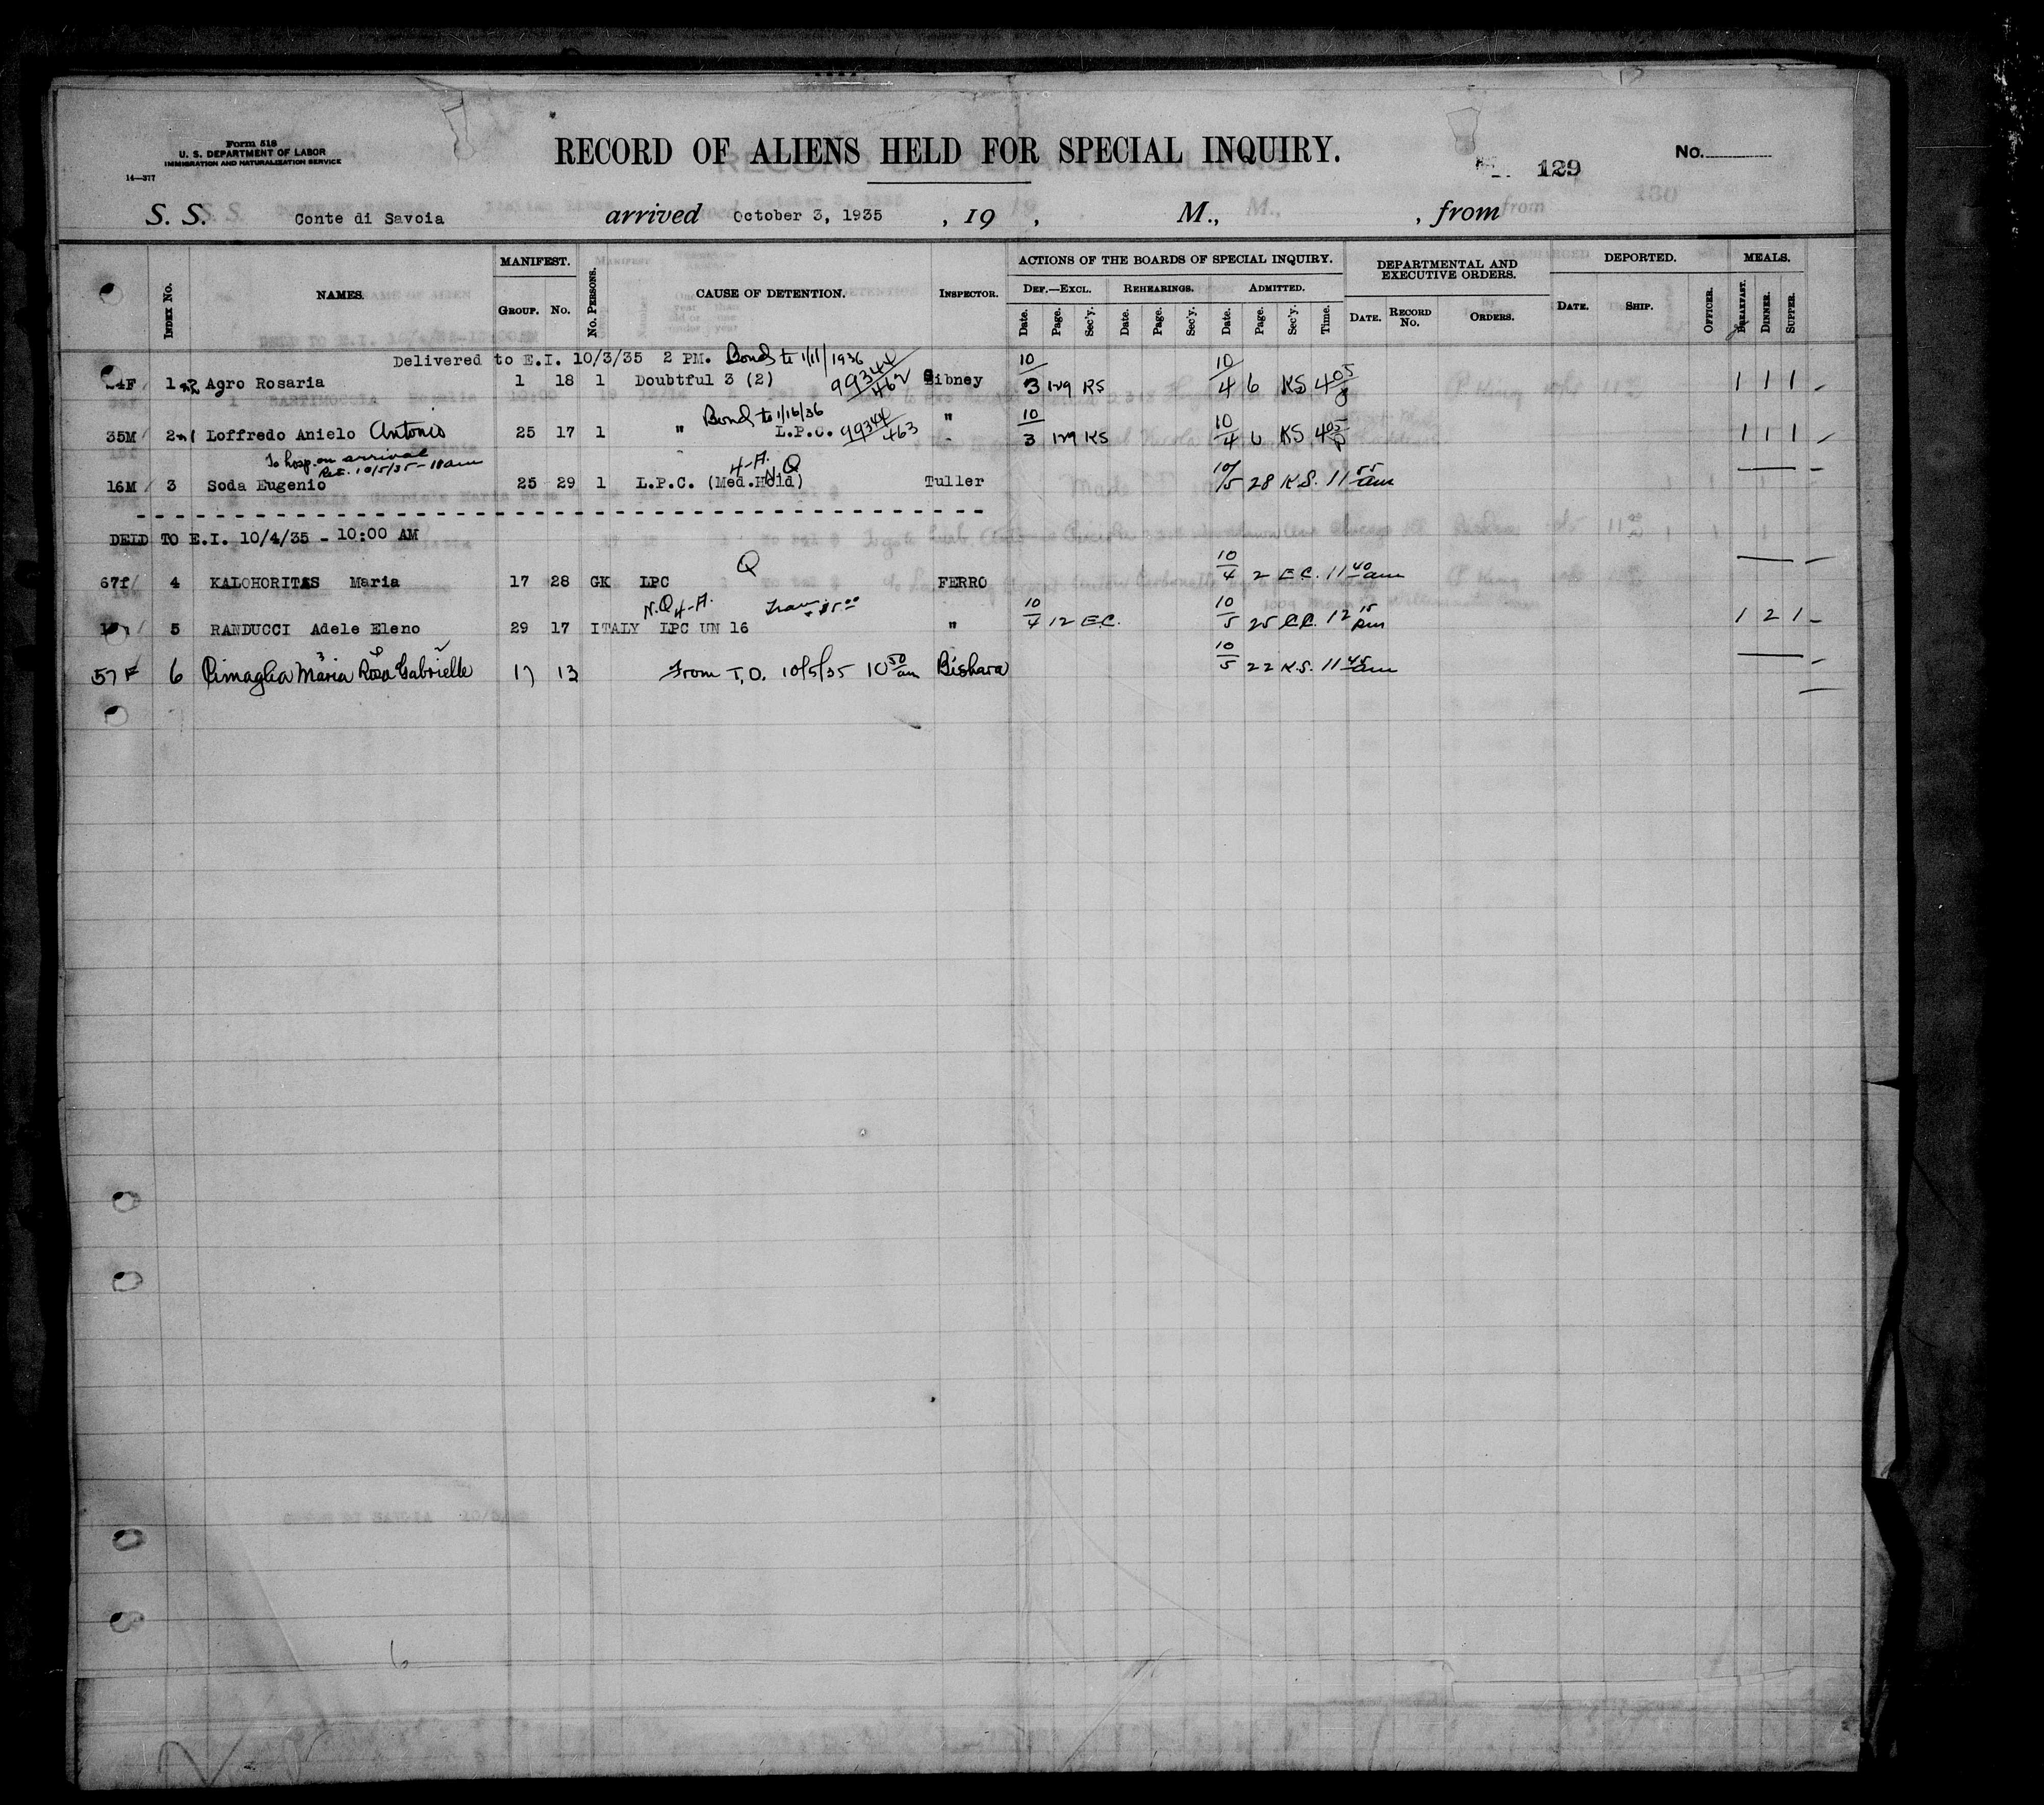 Form 518
U. S. DEPARTMENT OF LABOR
IMMIGRATION AND NATURALIZATION SERVICE
14—377
RECORD OF ALIENS HELD FOR SPECIAL INQUIRY.
129
No.
S. S. Conte di Savoia arrived October 3, 1935 , 19 , M., , from
INDEX No. NAMES. MANIFEST. GROUP. No. No. PERSONS. CAUSE OF DETENTION. INSPECTOR. ACTIONS OF THE BOARDS OF SPECIAL INQUIRY. DEPARTMENTAL AND EXECUTIVE ORDERS. DEPORTED. MEALS.
DEF.—EXCL. REHEARINGS. ADMITTED.
Date. Page. Sec'y. Date. Page. Sec'y. Date. Page. Sec'y. Time. DATE. RECORD No. ORDERS. DATE. SHIP. OFFICER. BREAKFAST. DINNER. SUPPER.
Delivered to E.I. 10/3/35 2 PM. Bond to 1/11/1936
1 Agro Rosaria 1 18 1 Doubtful 3 (2) 99344/462 Gibney 10/3 129 KS 10/4 6 KS 4 05 1 1 1
Bond to 1/16/36
35M 2 Loffredo Anielo Antonio 25 17 1 " L.P.C. 99344/463 " 10/3 129 KS 10/4 6 KS 4 05 1 1 1
To hosp. on arrival
Ret. 10/5/35 - 10am H-A. N.Q
16M 3 Soda Eugenio 25 29 1 L.P.C. (Med.Hold) Tuller 10/5 28 K.S. 11 55 am
DELD TO E.I. 10/4/35 - 10:00 AM
Q
67f 4 KALOHORITAS Maria 17 28 GK LPC FERRO 10/4 2 E.C. 11 40 am
N.Q H-A.
5 RANDUCCI Adele Eleno 29 17 ITALY LPC UN 16 " 10/4 12 E.C. 10/5 25 12 15 pm 1 2 1
57 F 6 Maria Rosa Gabrielle 17 13 From T.D. 10/5/35 10 50 am Bishara 10/5 22 K.S. 11 45 am
6